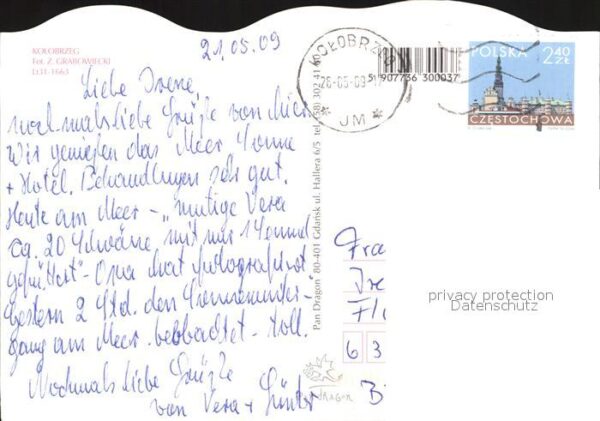 KOŁOBRZEG
Fot. Z. GRABOWIECKI
21.05.09
Liebe Irene,
nochmals liebe Grüße von hier.
Wir genießen das Meer Sonne
+ Hotel. Behandlungen sehr gut.
Heute am Meer - "mutige Vera
ca. 20 Schwäne mit nur 1 Hand
gefüttert" - Oma hat fotografiert
Gestern 2 Std. den Sonnenunter-
gang am Meer beobachtet - toll.
Nochmals liebe Grüße
von Vera + Günter
Pan Dragon 80-401 Gdańsk ul. Hallera 6/5 tel. (58) 302 41 60
DRAGON
KOŁOBRZEG
26-05-09
* JM *
5 907736 300037
POLSKA 2,40 ZŁ
CZĘSTOCHOWA
Fra
Ire
6 3
privacy protection
Datenschutz